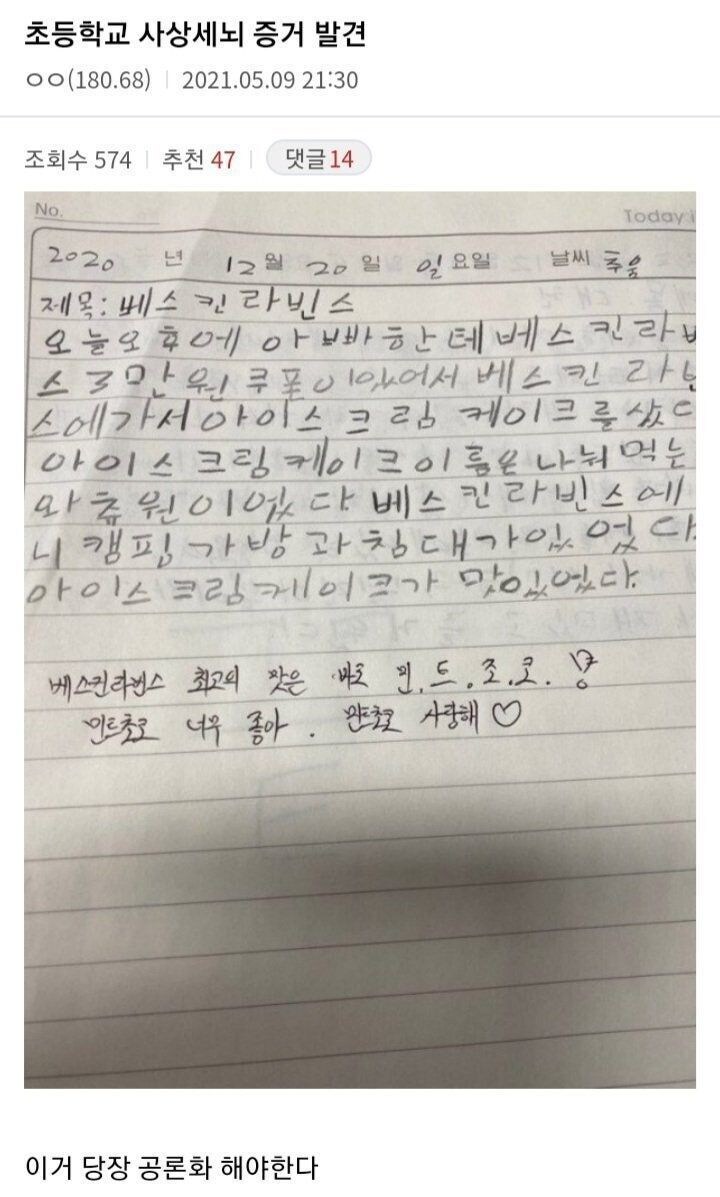 초등학교 사상세뇌 증거 발견
ㅇㅇ(180.68) 2021.05.09 21:30
조회수 574 추천 47 댓글 14
No. Today i
2020 년 12월 20일 일요일 날씨 추움
제목: 베스킨라빈스
오늘오후에 아빠한테베스킨라
스3만원쿠폰이있어서 베스킨라
스에가서아이스크림 케이크를샀
아이스크림케이크이름은나눠먹는
와츄원이었다 베스킨라빈스에
니캠핑가방과침대가있었다.
아이스크림케이크가 맛있었다.
베스킨라빈스 최고의 맛은 바로 민.트.초.코.
민트초코 너무 좋아. 사랑해♡
이거 당장 공론화 해야한다